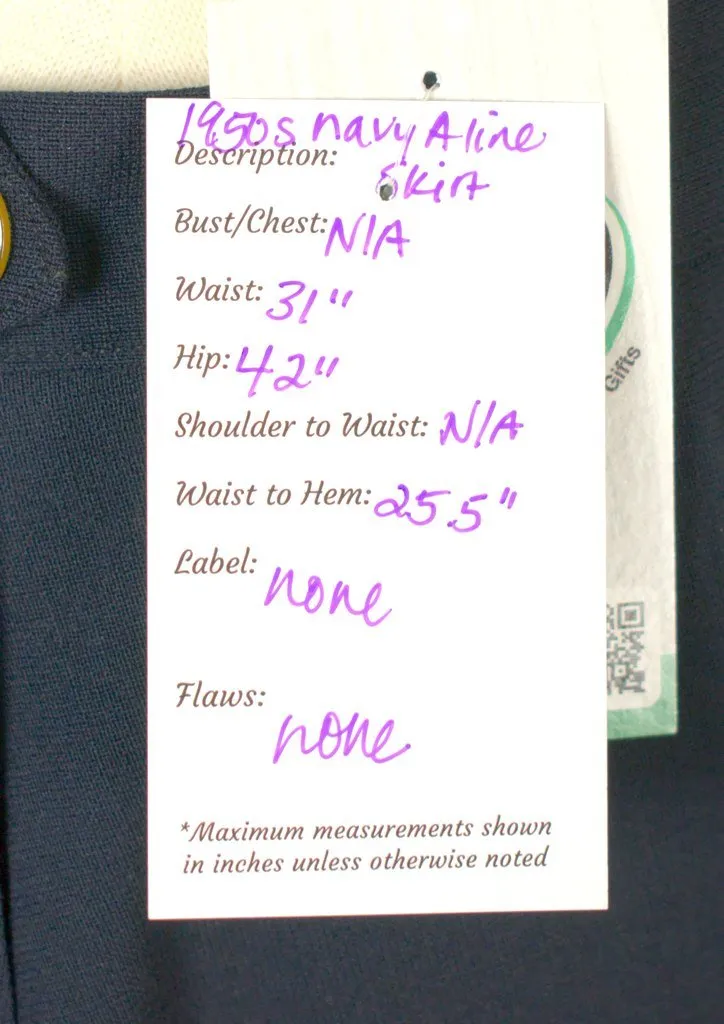 1950s navy A line
Description:
skirt
Bust/Chest: N/A
Waist: 31"
Hip: 42"
Shoulder to Waist: N/A
Waist to Hem: 25.5"
Label:
none
Flaws:
none
*Maximum measurements shown
in inches unless otherwise noted
Gifts